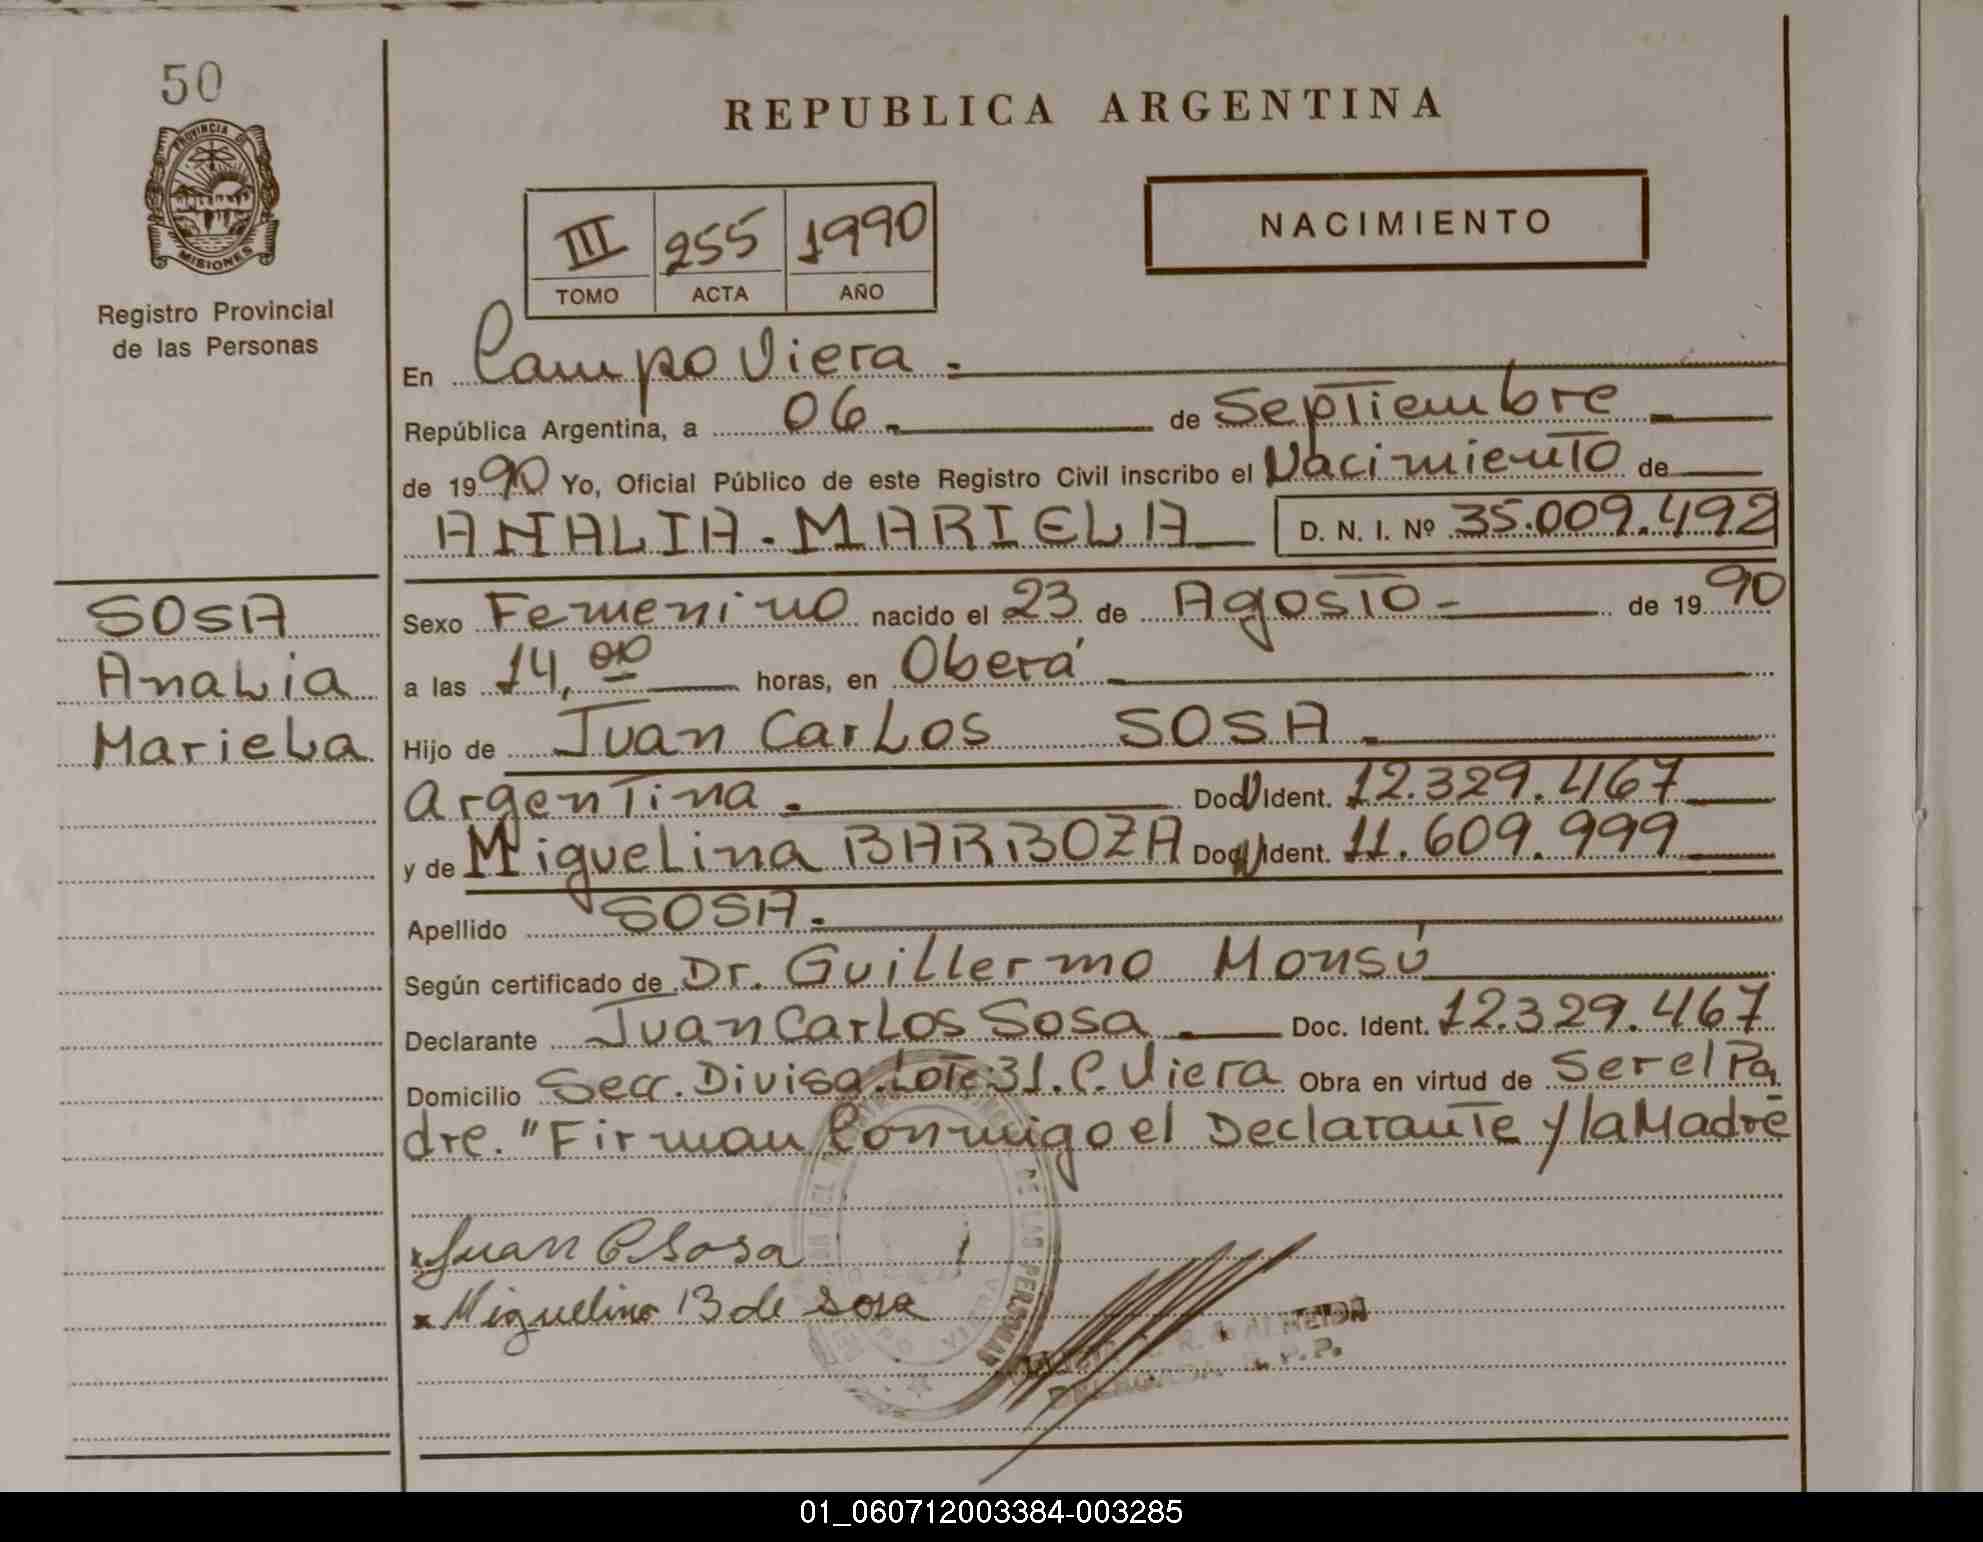 50
PROVINCIA DE
MISIONES
Registro Provincial
de las Personas
REPUBLICA ARGENTINA
III 255 1990
TOMO ACTA AÑO
NACIMIENTO
En Campo Viera.
República Argentina, a 06. de Septiembre
de 1990 Yo, Oficial Público de este Registro Civil inscribo el Nacimiento de
ANALIA. MARIELA D. N. I. Nº 35.009.492
SOSA
Analia
Mariela
Sexo Femenino nacido el 23 de Agosto - de 1990
a las 14,00 horas, en Oberá
Hijo de Juan Carlos SOSA.
Argentina. Doc. Ident. 12.329.467
y de Miguelina BARBOZA Doc. Ident. 11.609.999
Apellido SOSA.
Según certificado de Dr. Guillermo Monsú
Declarante Juan Carlos Sosa. Doc. Ident. 12.329.467
Domicilio Secc. Divisa. Lote: 31. C. Viera Obra en virtud de Ser el Pa
dre. "Firman Conmigo el Declarante y la Madre
x Juan C Sosa
x Miguelina B de Sosa
DE LAS PERSONAS
R. de ALMEIDA
R. P. P.
01_060712003384-003285